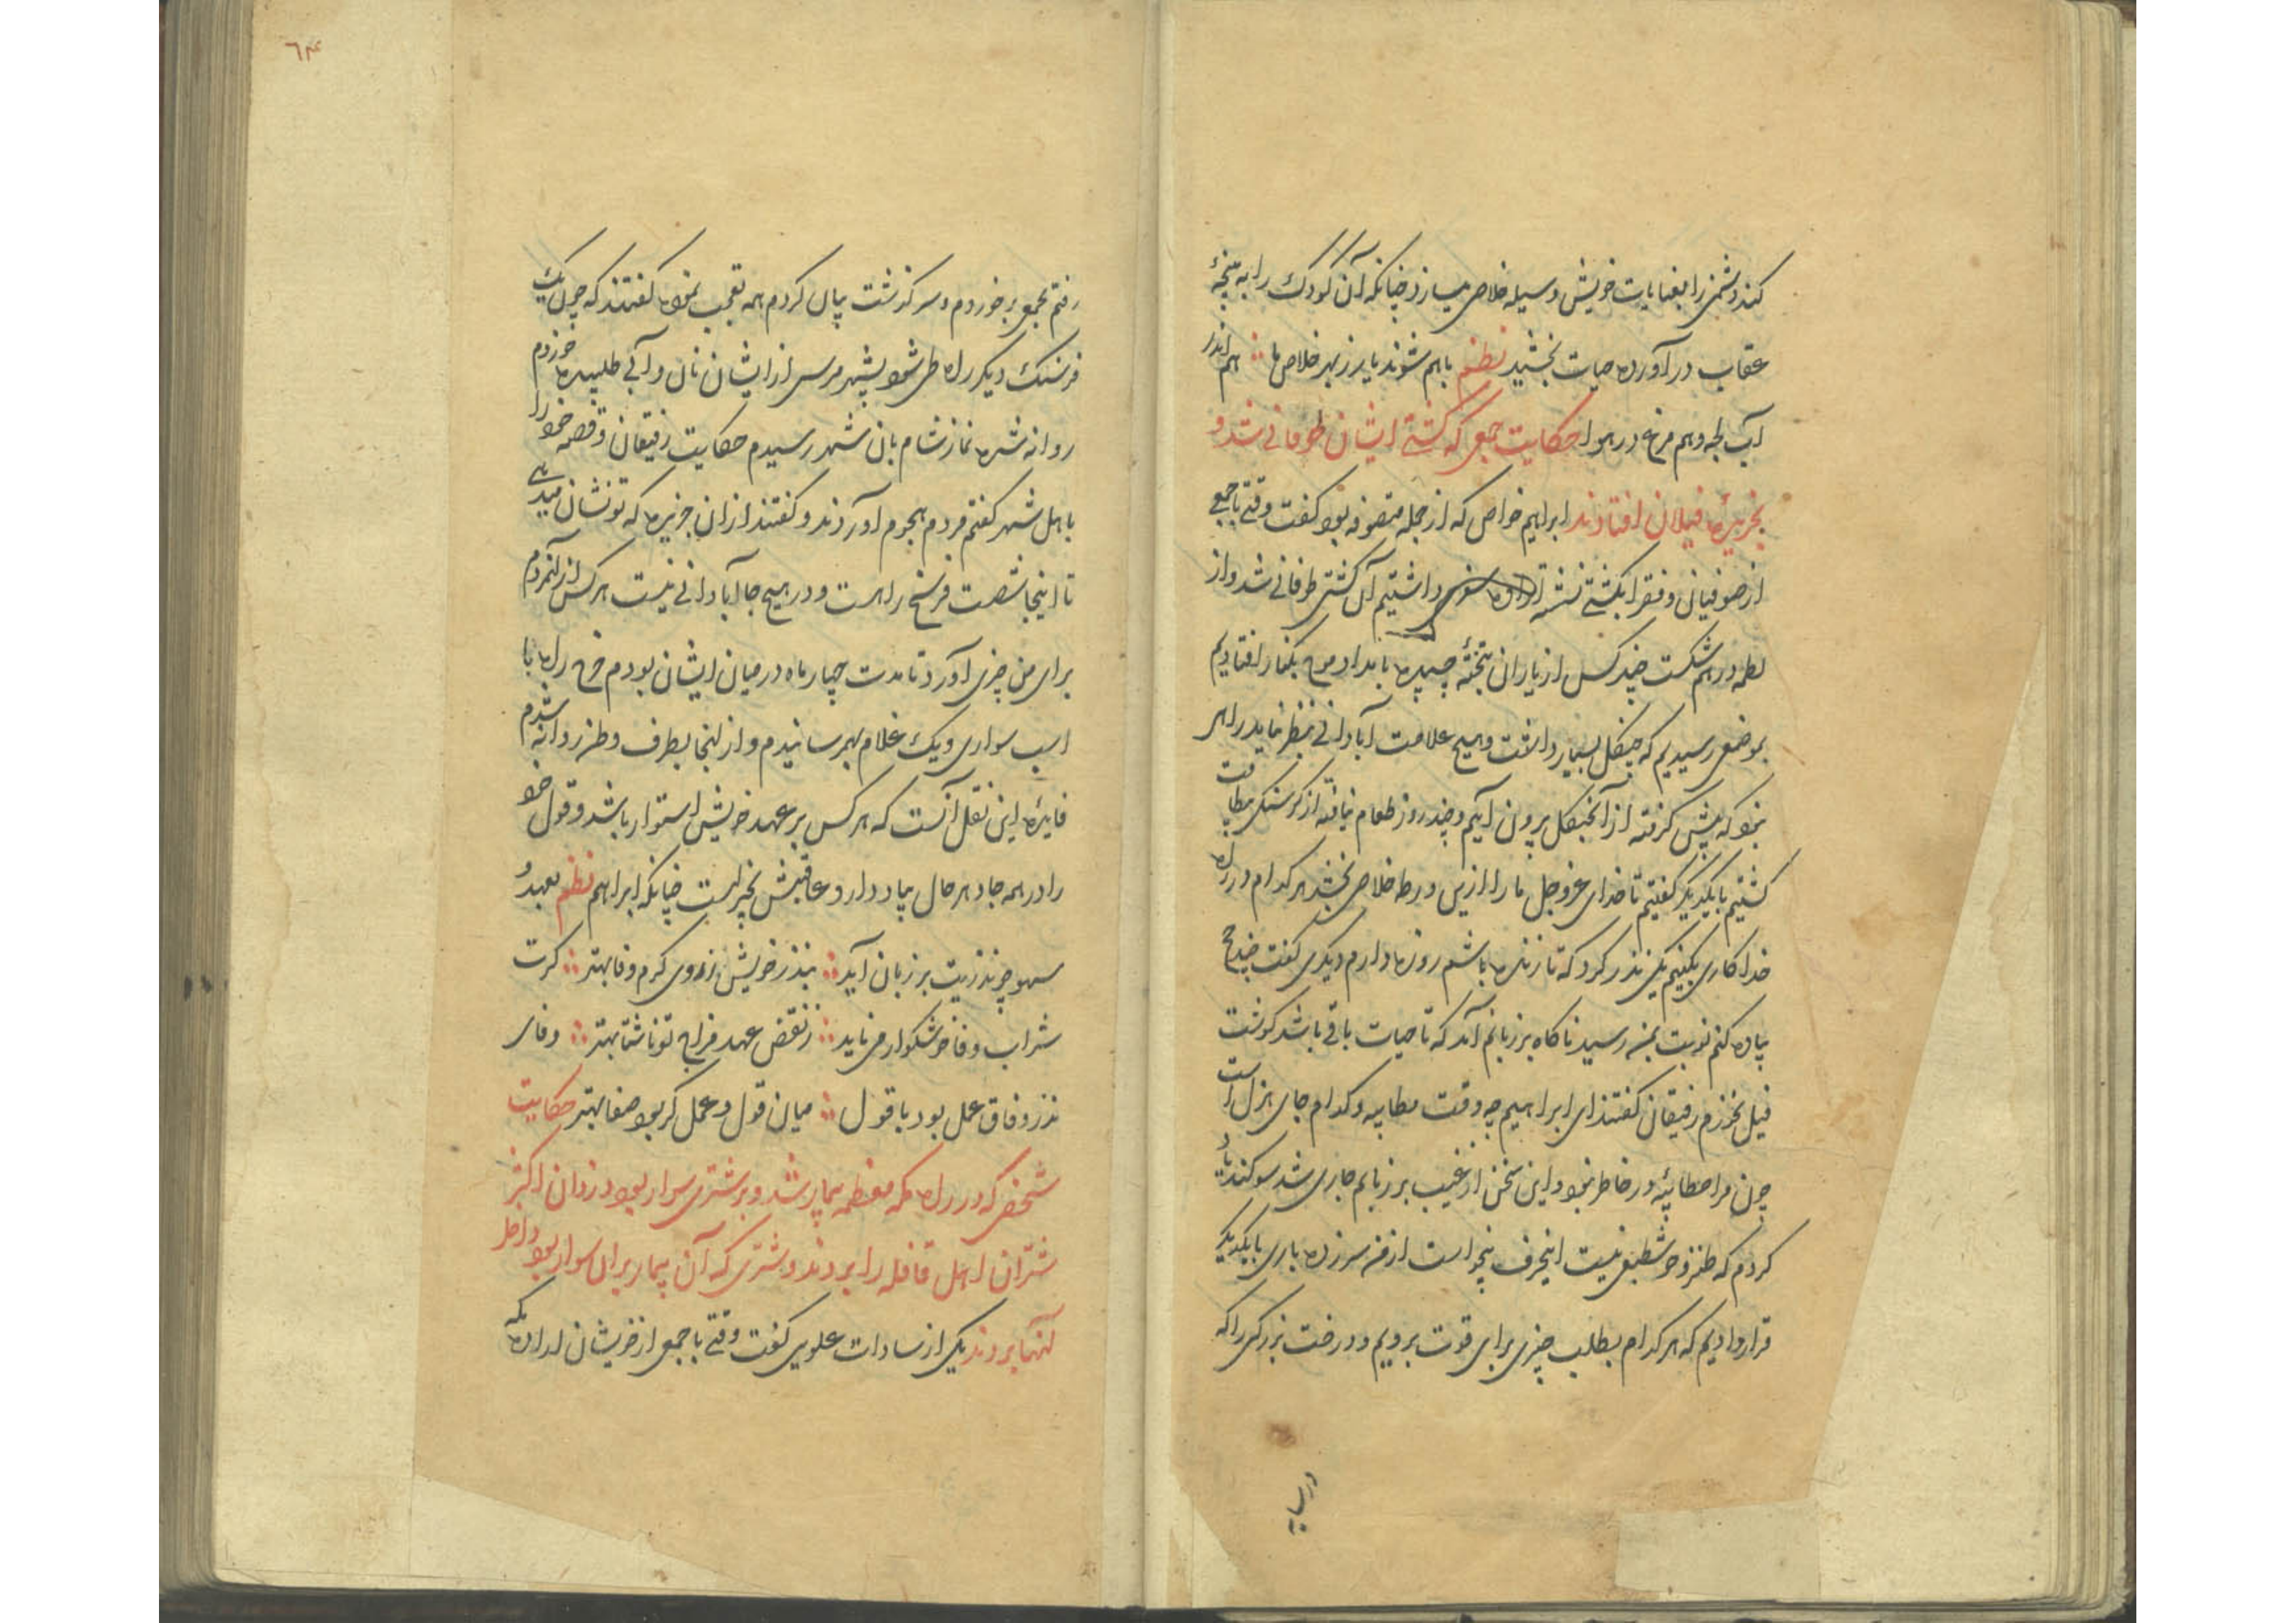 کند دشمن را بعنایات خویش وسیله خلاص میسازد چنانکه آن کودک را به پنجهٔ
عقاب در آورده حیات بخشید نظم باهم شوند یار ز بهر خلاص ما هم اندر
آب لجه و هم مرغ در هوا حکایت جمعی که کشتی ایشان طوفانی شد و
بجزیرهٔ فیلان افتادند ابراهیم خواص که از جمله متصوفه بود گفت وقتی با جمعی
از صوفیان و فقرا بکشتی نشسته اراده سفری داشتیم آن کشتی طوفانی شد و از
لطمه در هم شکست چند کس از یاران بتختهٔ چسپیده بامداد موج بکنار افتادیم
بموضعی رسیدیم که جنگل بسیار داشت و هیچ علامت آبادانی بنظر نیامد راهی
نبود که پیش گرفته از آن جنگل برون آییم و چند روز طعام نیافته از گرسنگی بیطاقت
گشتیم با یکدیگر گفتیم تا خدای عز و جل ما را ازین ورطه خلاص بخشد هر کدام در راه
خدا کاری بکنیم یکی نذر کرد که تا زنده باشم روزه دارم دیگری گفت چند حج
پیاده کنم نوبت بمن رسید ناگاه بر زبانم آمد که تا حیات باقی باشد گوشت
فیل نخورم رفیقان گفتند ای ابراهیم چه وقت مطایبه و کدام جای هزل است
چون مرا مطائبه در خاطر نبود و این سخن از غیب بر زبانم جاری شد سوگند یاد
کردم که طنز و خوشطبعی نیست اینحرف بیخواست از من سر زده باری با یکدیگر
قرار دادیم که هر کدام بطلب چیزی برای قوت برویم و درخت بزرگی را که
در سایه
٦۴
رفتم بجمعی بر خوردم و سر گذشت بیان کردم همه تعجب نموده گفتند که چون یک
فرسنگ دیگر راه طی شود بشهر مرسی از ایشان نان و آبی طلبیده خوردم
روانه شده نماز شام بان شهر رسیدم حکایت رفیقان و قصه خود را
باهل شهر گفتم مردم هجوم آوردند و گفتند ازان جزیره که تو نشان میدهی
تا اینجا شصت فرسخ راهست و در هیچ جا آبادانی نیست هر کس از آنمردم
برای من چیزی آورد تا مدت چهار ماه درمیان ایشان بودم خرج راه با
اسب سواری و یک غلام بهم رسانیدم و از انجا بطرف وطن روانه شدم
فایدهٔ این نقل آنست که هر کس بر عهد خویش استوار باشد و قول خود
را در همه جا و هر حال بیاد دارد عاقبتش بخیر است چنانکه ابراهیم نظم بعهد و
سهو چو نذریت بر زبان آید بنذر خویش ز روی کرم وفا بهتر گرت
شراب وفا خوشگوار می ناید ز نقض عهد مزاج تو ناشتا بهتر وفای
نذر وفاق عمل بود با قول میان قول و عمل گر بود صفا بهتر حکایت
شخصی که در راه مکه معظمه بیمار شد و بر شتری سوار بود دزدان اکثر
شتران اهل قافله را بردند و شتری که آن بیمار بران سوار بود داخل
آنها بردند یکی از سادات علوی گفت وقتی با جمعی از خویشان اراده مکه